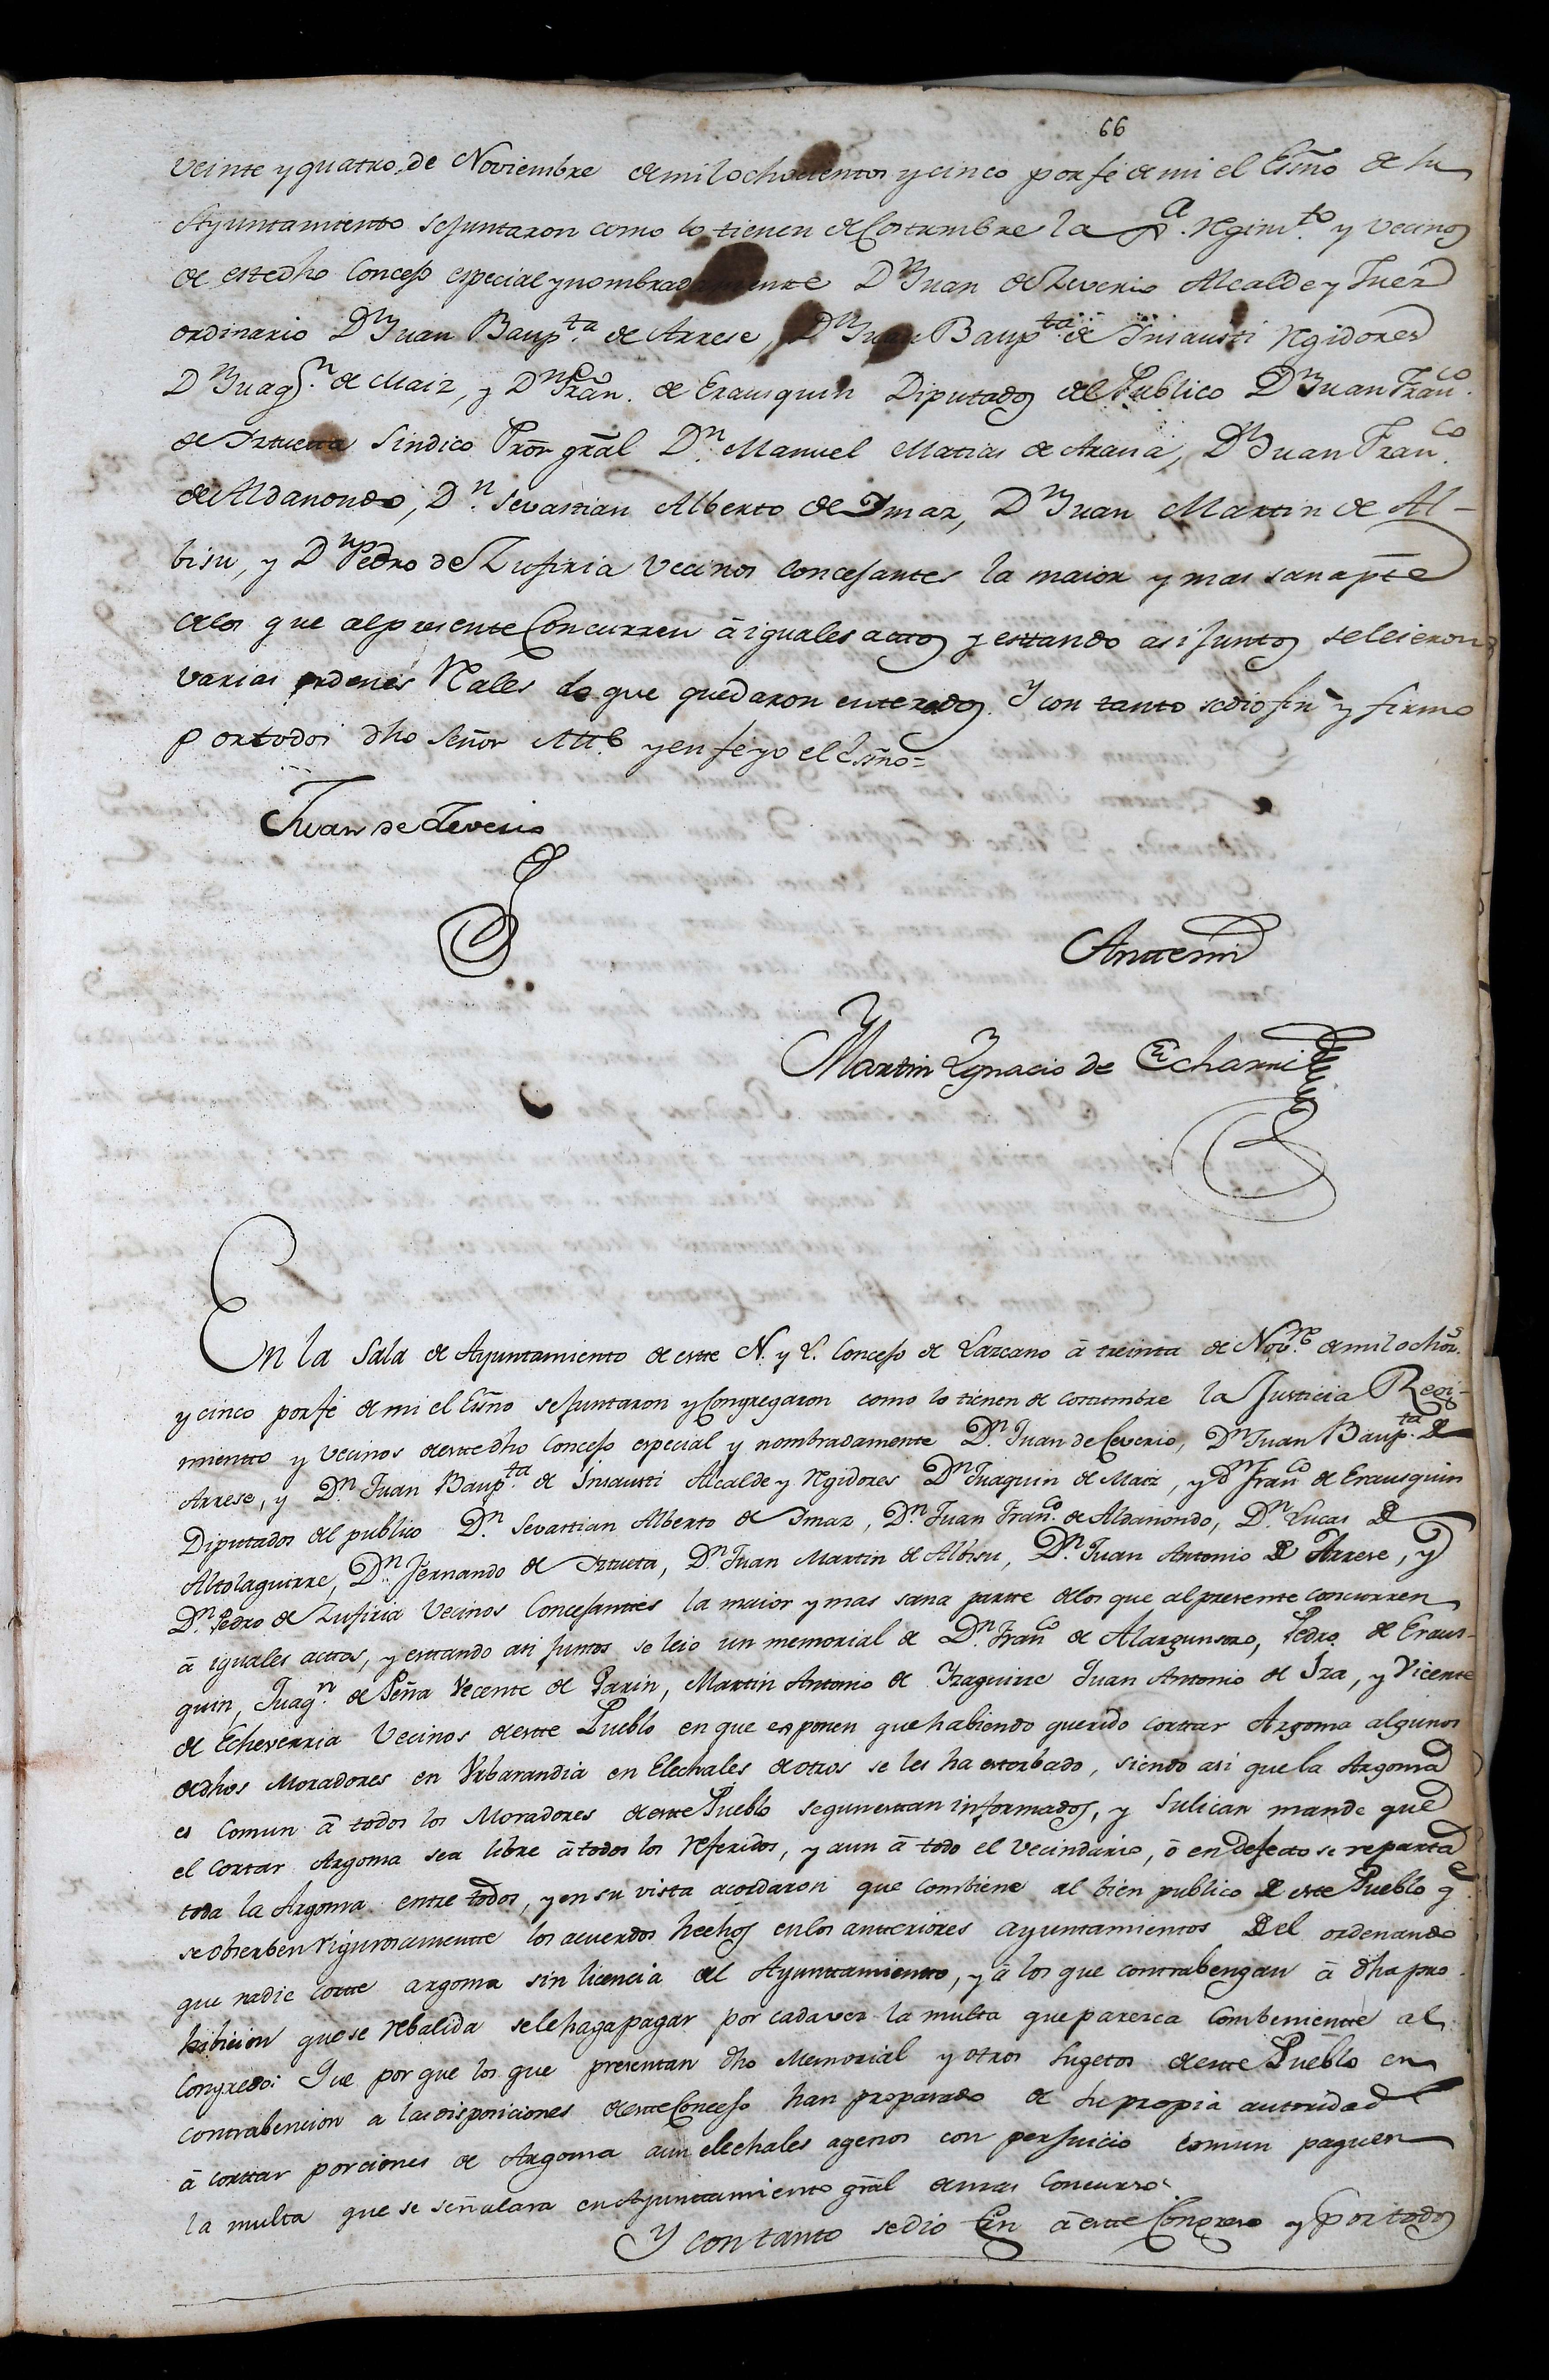 66
veinte y quatro de Noviembre de mil ochocientos y cinco por fe de mi el Esño de su
Ayuntamiento se juntaron como lo tienen de Costumbre la Jª. Rgimto. y vecinos
de este dho Concejo especial y nombradamente Dn Juan de Zeverio Alcalde y Juez
ordinario Dn Juan Baupta. de Arrese, Dn Juan Baupta. de Insausti Rgidores
Dn Juaqn. de Maiz, y Dn Franco. de Erausquin Diputados del Publico Dn Juan Franco.
de Iztueta Sindico Pror gral Dn. Manuel Matias de Arana, Dn Juan Franco.
de Aldanondo, Dn. Sevastian Alberto de Imaz, Dn Juan Martin de Al-
bisu, y Dn Pedro de Zufiria Vecinos Concejantes la maior y mas sana pte
de los que al presente Concurren á iguales actos y estando asi juntos se leieron
varias ordenes Rales de que quedaron enterados. Y con tanto se dio fin y firmo
por todos dho Señor Alle y en fe yo el Esño=
Juan de Zeverio
Ante mi
Martin Ygnacio de Echarri
En la Sala de Ayuntamiento de este N. y L. Concejo de Lazcano á treinta de Novre. de mil ochos.
y cinco por fe de mi el Esño se juntaron y Congregaron como lo tienen de costumbre la Justicia Regi-
miento y Vecinos de este dho Concejo especial y nombradamente Dn. Juan de Ceverio, Dn Juan Baupta. de
Arrese, y Dn. Juan Baupta. de Insausti Alcalde y Rgidores Dn Juaquin de Maiz, y Dn Franco de Erausquin
Diputados del publico Dn. Sevastian Alberto de Imaz, Dn. Juan Franco. de Aldanondo, Dn. Lucas de
Altolaguirre, Dn. Fernando de Iztueta, Dn. Juan Martin de Albisu, Dn. Juan Antonio de Arrese, y
Dn. Pedro de Zufiria Vecinos Concejantes la maior y mas sana parte de los que al presente concurren
á iguales actos, y estando asi juntos se leio un memorial de Dn. Franco de Alargunsoro, Pedro de Eraus-
quin, Juaqn. de Peña Vicente de Parin, Martin Antonio de Yzaguirre Juan Antonio de Iza, y Vicente
de Echeverria Vecinos de este Pueblo en que exponen que habiendo querido cortar Argoma algunos
de dhos Moradores en Urbarandia en Elechales de otros se les ha estorbado, siendo asi que la Argoma
es Comun á todos los Moradores de este Pueblo segun estan informados, y Sulican mande que
el cortar Argoma sea libre á todos los referidos, y aun á todo el vecindario, ó en Defecto se reparta
toda la Argoma entre todos, y en su vista acordaron que combiene al bien publico de este Pueblo q.e
se obserben rigurosamente los acuerdos hechos en los anteriores ayuntamientos del ordenando
que nadie corte argoma sin licencia del Ayuntamiento, y á los que contrabengan á dha pro
hibicion que se rebalida se le haga pagar por cada vez la multa que parezca combeniente al
Congreso: Que por que los que presentan dho Memorial y otros sugetos de este Pueblo en
contrabencion a las disposiciones de este Concejo han propasado de su propia autoridad
á cortar porciones de Argoma aun elechales agenos con perjuicio comun paguen
la multa que se señalara en Ayuntamiento gral de mas Concurso.
Y con tanto se dio fin á este Congreso y Por todos